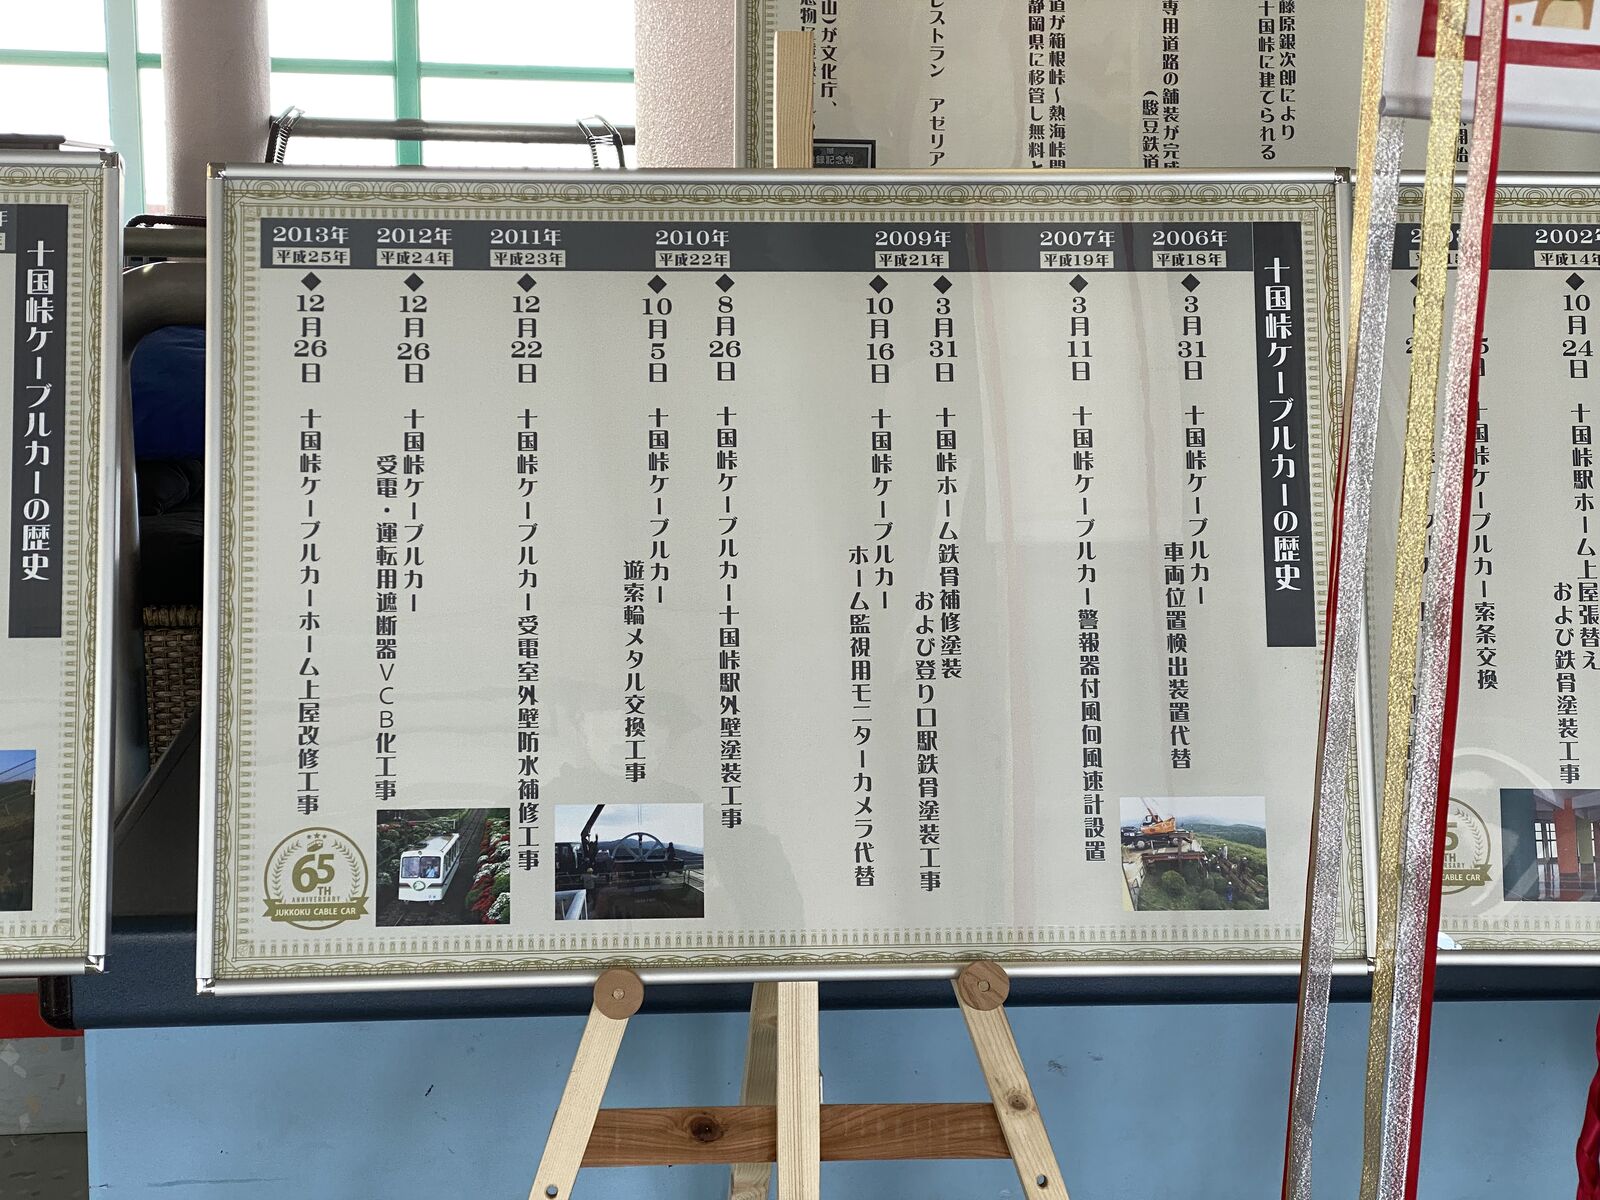 十国峠ケーブルカーの歴史
2006年
平成18年
◆3月31日 十国峠ケーブルカー
車両位置検出装置代替
2007年
平成19年
◆3月11日 十国峠ケーブルカー警報器付風向風速計設置
2009年
平成21年
◆3月31日 十国峠ホーム鉄骨補修塗装
および登り口駅鉄骨塗装工事
◆10月16日 十国峠ケーブルカー
ホーム監視用モニターカメラ代替
2010年
平成22年
◆8月26日 十国峠ケーブルカー十国峠駅外壁塗装工事
◆10月5日 十国峠ケーブルカー
遊索輪メタル交換工事
2011年
平成23年
◆12月22日 十国峠ケーブルカー受電室外壁防水補修工事
2012年
平成24年
◆12月26日 十国峠ケーブルカー
受電・運転用遮断器VCB化工事
2013年
平成25年
◆12月26日 十国峠ケーブルカーホーム上屋改修工事
65TH
ANNIVERSARY
JUKKOKU CABLE CAR
藤原銀次郎により
十国峠に建てられる
専用道路の舗装が完成
(駿豆鉄道
道が箱根峠〜熱海峠間
静岡県に移管し無料と
レストラン アゼリア
山)が文化庁、
録記念物
2002年
平成14年
◆10月24日 十国峠駅ホーム上屋張替え
および鉄骨塗装工事
ケーブルカー索条交換
CABLE CAR
十国峠ケーブルカーの歴史